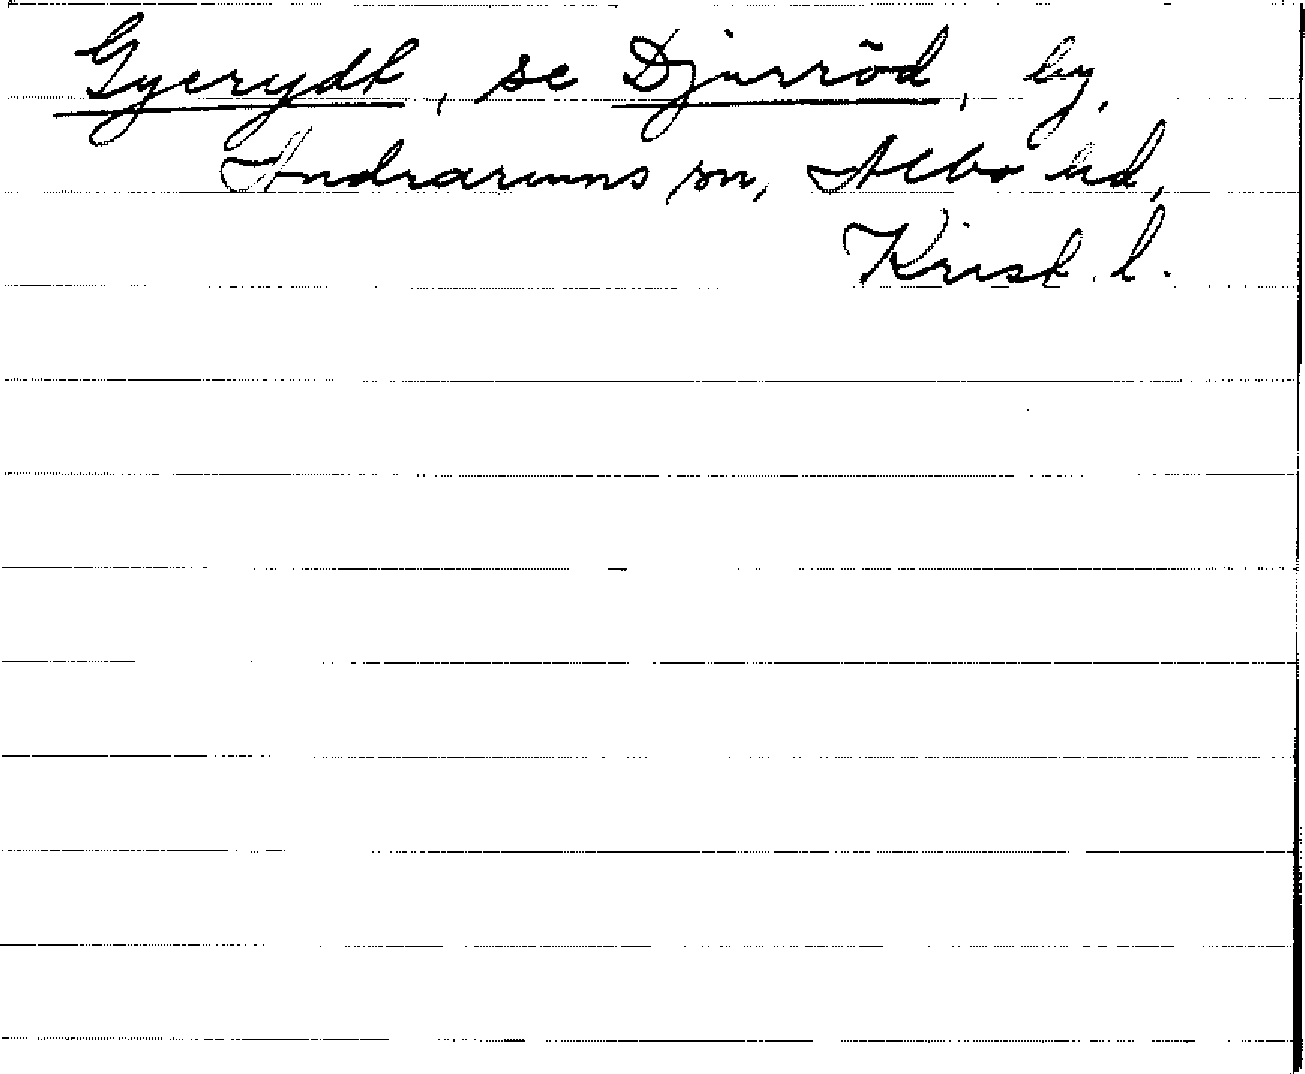 Gyerydt, se Djurröd, by,
Andrarums sn, Albo hd,
Krist. l.